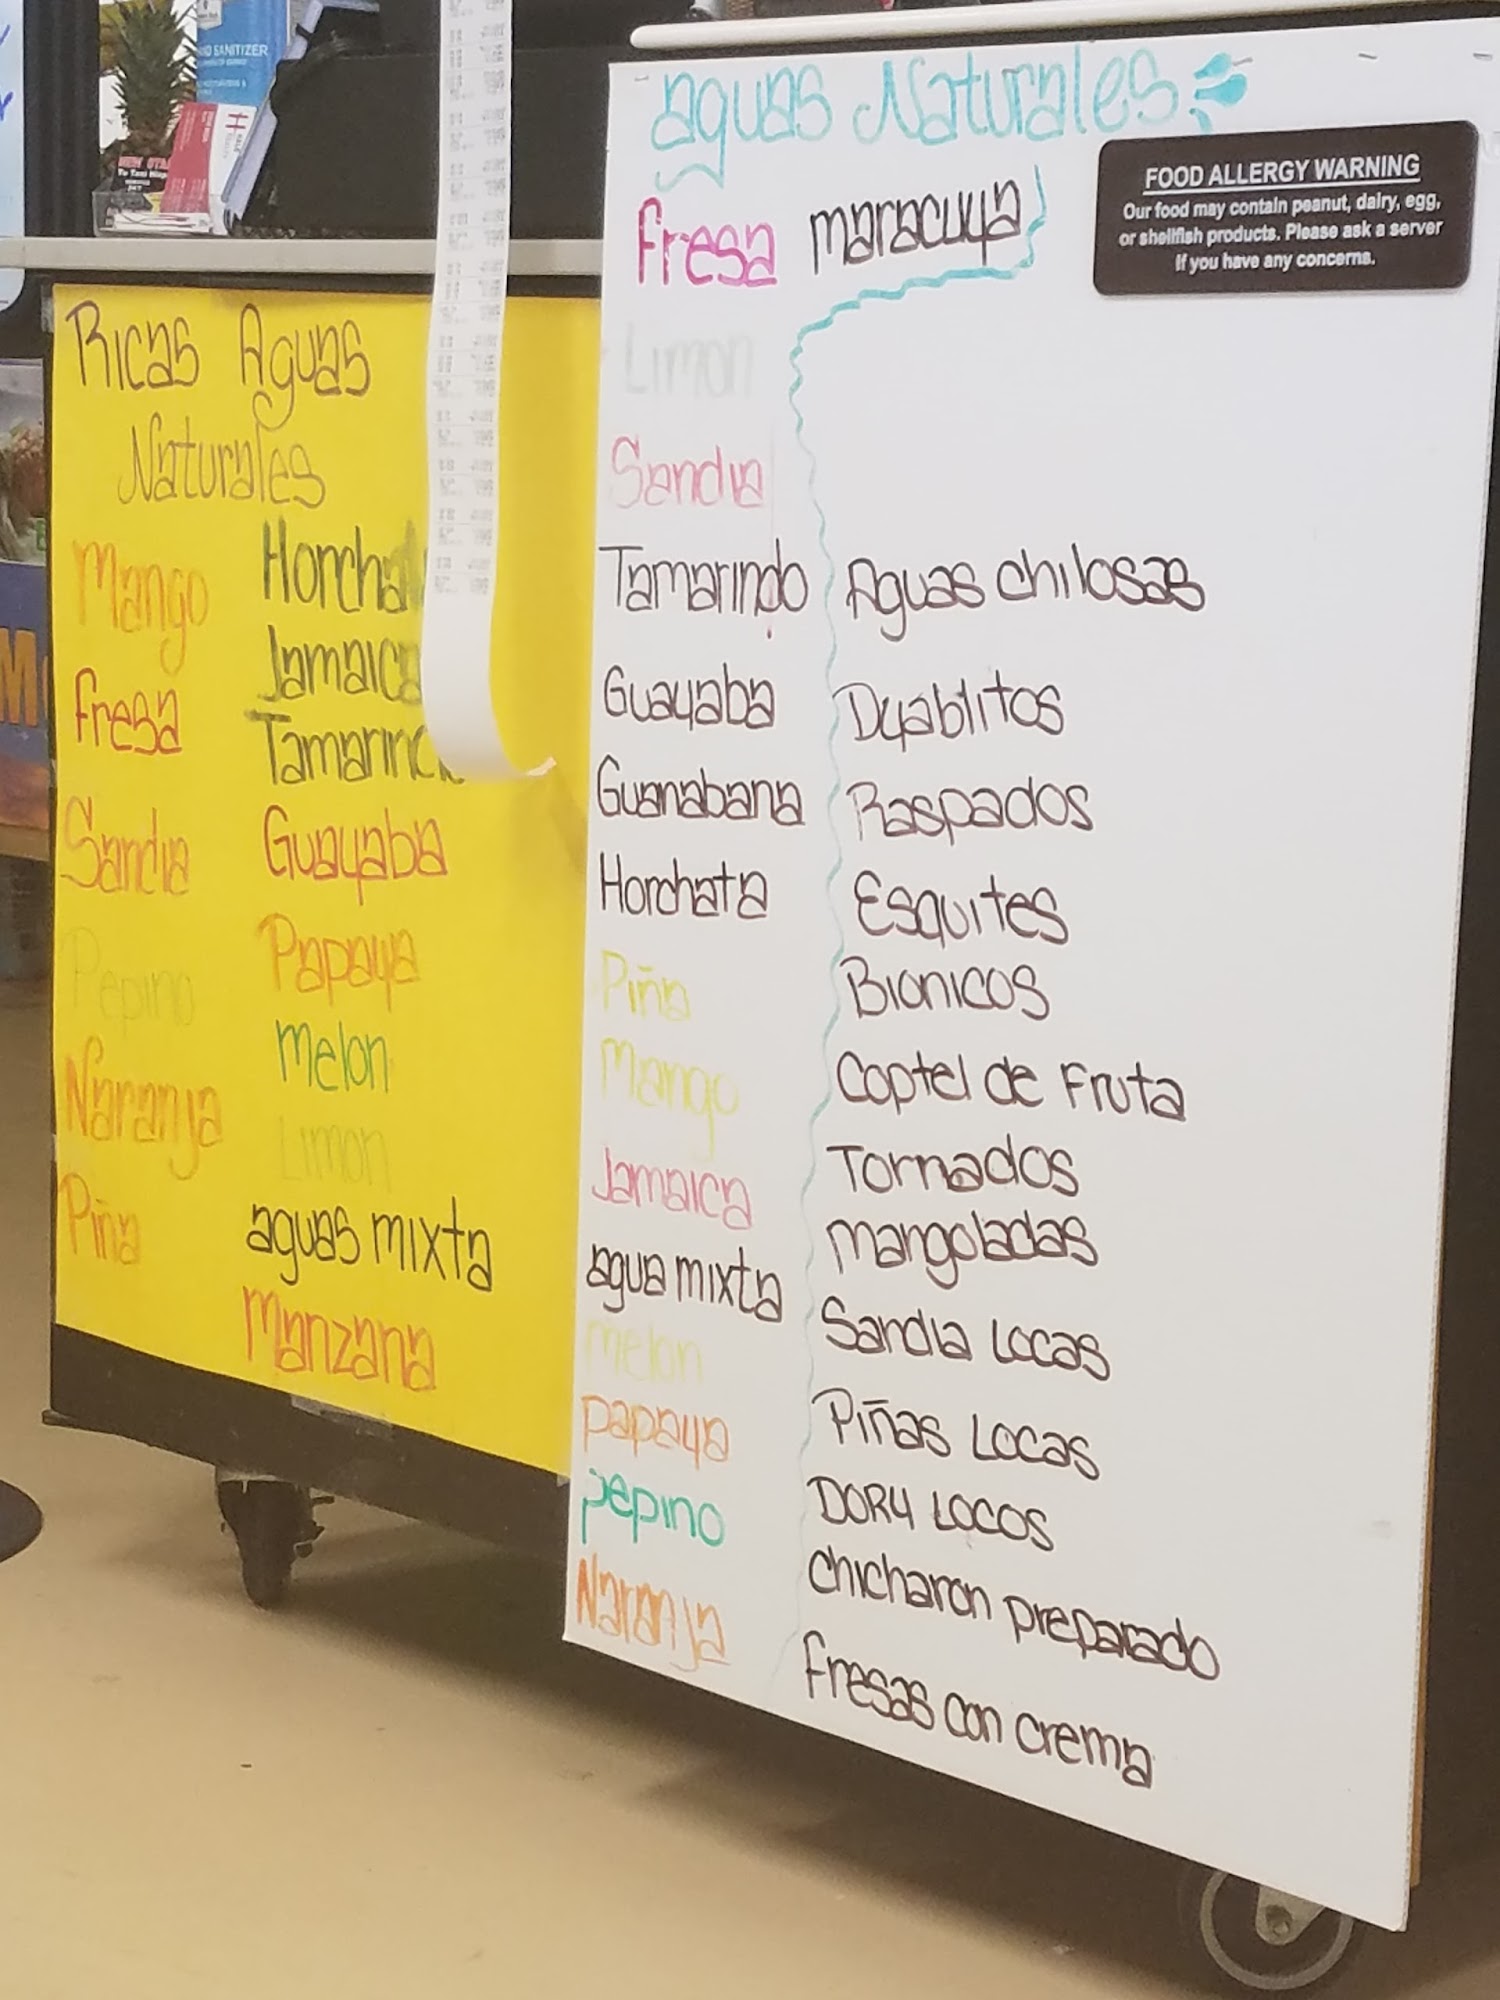 ND SANITIZER
Ricas Aguas
Naturales
Mango
Fresa
Sandia
Pepino
Naranja
Piña
Horchat
Jamaica
Tamarind
Guayaba
Papaya
Melon
Limon
aguas mixta
Manzana
aguas Naturales
Fresa maracuya
Limon
Sandia
Tamarindo
Guayaba
Guanabana
Horchata
Piña
Mango
Jamaica
agua mixta
melon
papaya
pepino
Naranja
FOOD ALLERGY WARNING
Our food may contain peanut, dairy, egg,
or shellfish products. Please ask a server
if you have any concerns.
Aguas chilosas
Dyablitos
Raspados
Esquites
Bionicos
Coptel de Fruta
Tornados
mangoladas
Sandia Locas
Piñas Locas
DORY LOCOS
chicharon preparado
Fresas con crema